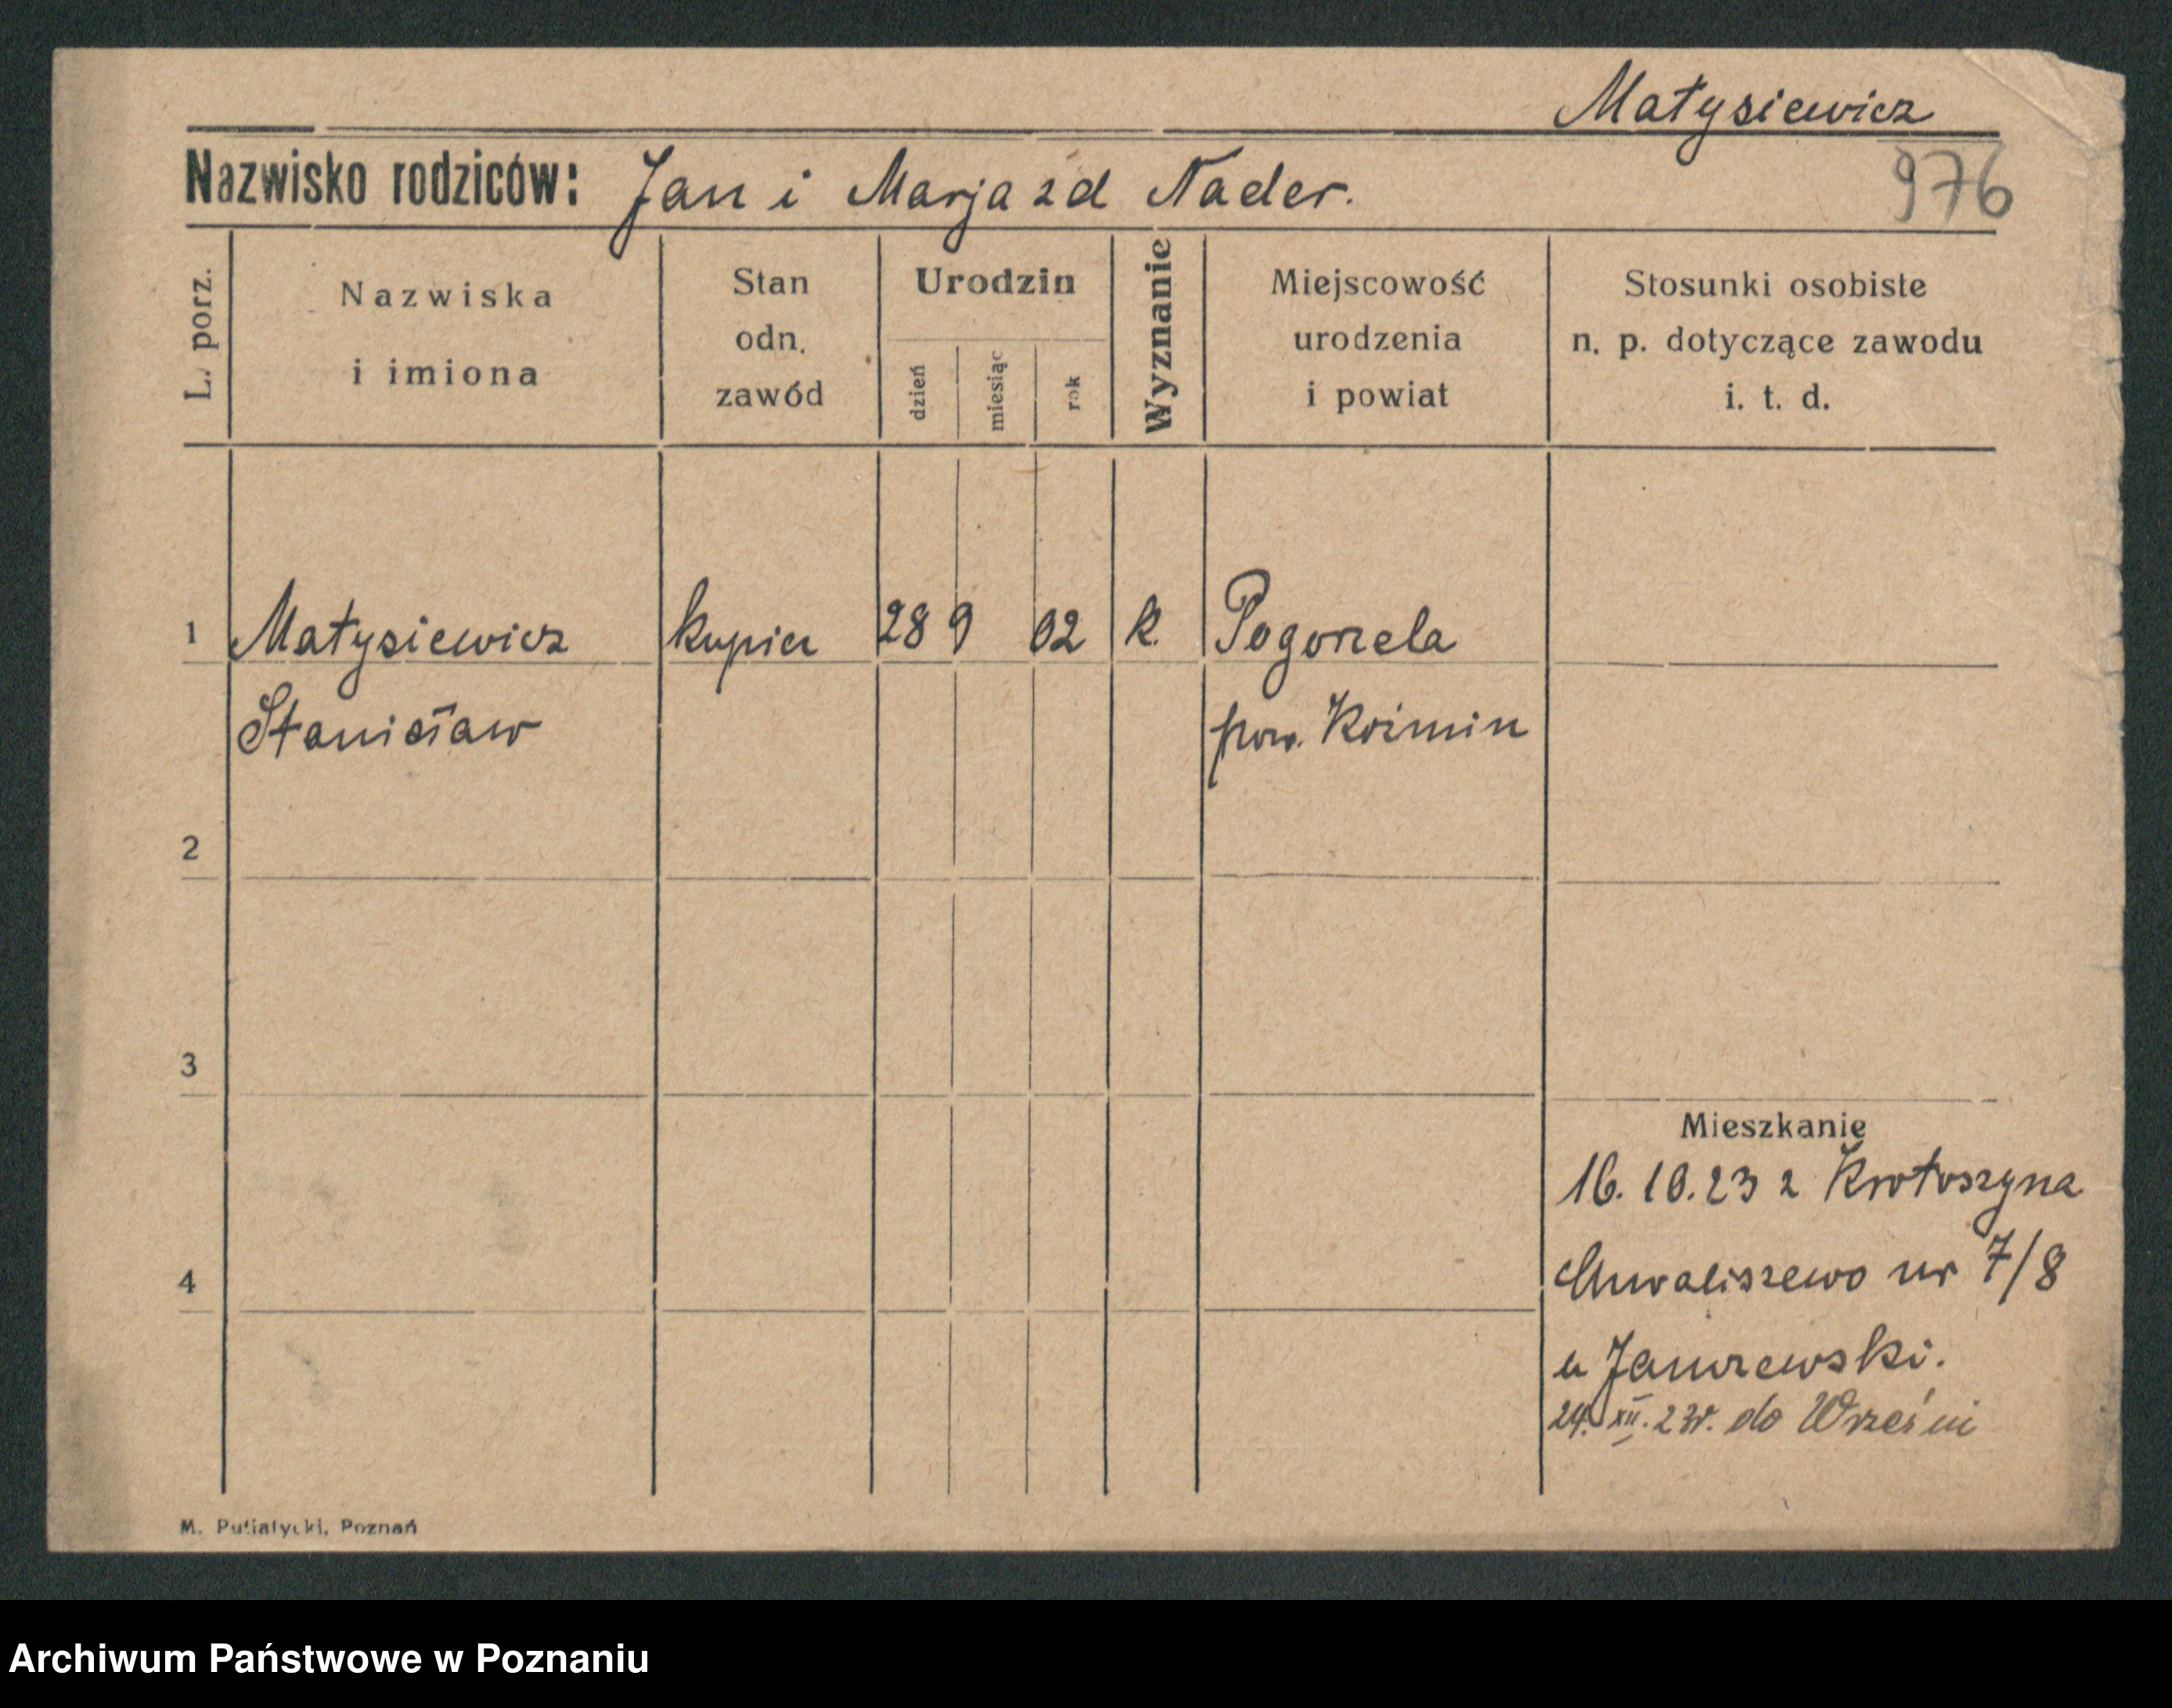 Matysiewicz
Nazwisko rodziców: Jan i Marja zd Nader.
976
L. porz.
Nazwiska
i imiona
Stan
odn.
zawód
Urodzin
dzień
miesiąc
rok
Wyznanie
Miejscowość
urodzenia
i powiat
Stosunki osobiste
n. p. dotyczące zawodu
i. t. d.
1 Matysiewicz kupiec 28 9 02 k. Pogorzela
Stanisław pow. Koźmin
2
3
Mieszkanie
16. 10. 23 z Krotoszyna
4 Chwaliszewo nr 7/8
u Janrzewski.
24. XII. 23r. do Wrześni
M. Putiatycki, Poznań
Archiwum Państwowe w Poznaniu